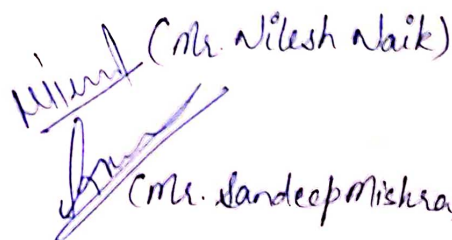 (Mr. Nilesh Naik)
(Mr. Sandeep Mishra